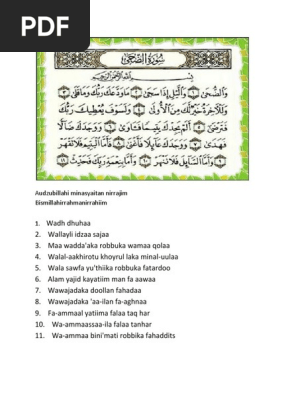 PDF
سورة الضحى
بسم الله الرحمن الرحيم
وَالضُّحَىٰ ١ وَاللَّيْلِ إِذَا سَجَىٰ ٢ مَا وَدَّعَكَ رَبُّكَ وَمَا قَلَىٰ ٣
وَلَلْآخِرَةُ خَيْرٌ لَكَ مِنَ الْأُولَىٰ ٤ وَلَسَوْفَ يُعْطِيكَ رَبُّكَ
فَتَرْضَىٰ ٥ أَلَمْ يَجِدْكَ يَتِيمًا فَآوَىٰ ٦ وَوَجَدَكَ ضَالًّا
فَهَدَىٰ ٧ وَوَجَدَكَ عَائِلًا فَأَغْنَىٰ ٨ فَأَمَّا الْيَتِيمَ فَلَا تَقْهَرْ
٩ وَأَمَّا السَّائِلَ فَلَا تَنْهَرْ ١٠ وَأَمَّا بِنِعْمَةِ رَبِّكَ فَحَدِّثْ ١١
Audzubillahi minasyaitan nirrajim
Bismillahirrahmanirrahiim
1. Wadh dhuhaa
2. Wallayli idzaa sajaa
3. Maa wadda'aka robbuka wamaa qolaa
4. Walal-aakhirotu khoyrul laka minal-uulaa
5. Wala sawfa yu'thiika robbuka fatardoo
6. Alam yajid kayatiim man fa aawaa
7. Wawajadaka doollan fahadaa
8. Wawajadaka 'aa-ilan fa-aghnaa
9. Fa-ammaal yatiima falaa taq har
10. Wa-ammaassaa-ila falaa tanhar
11. Wa-ammaa bini'mati robbika fahaddits